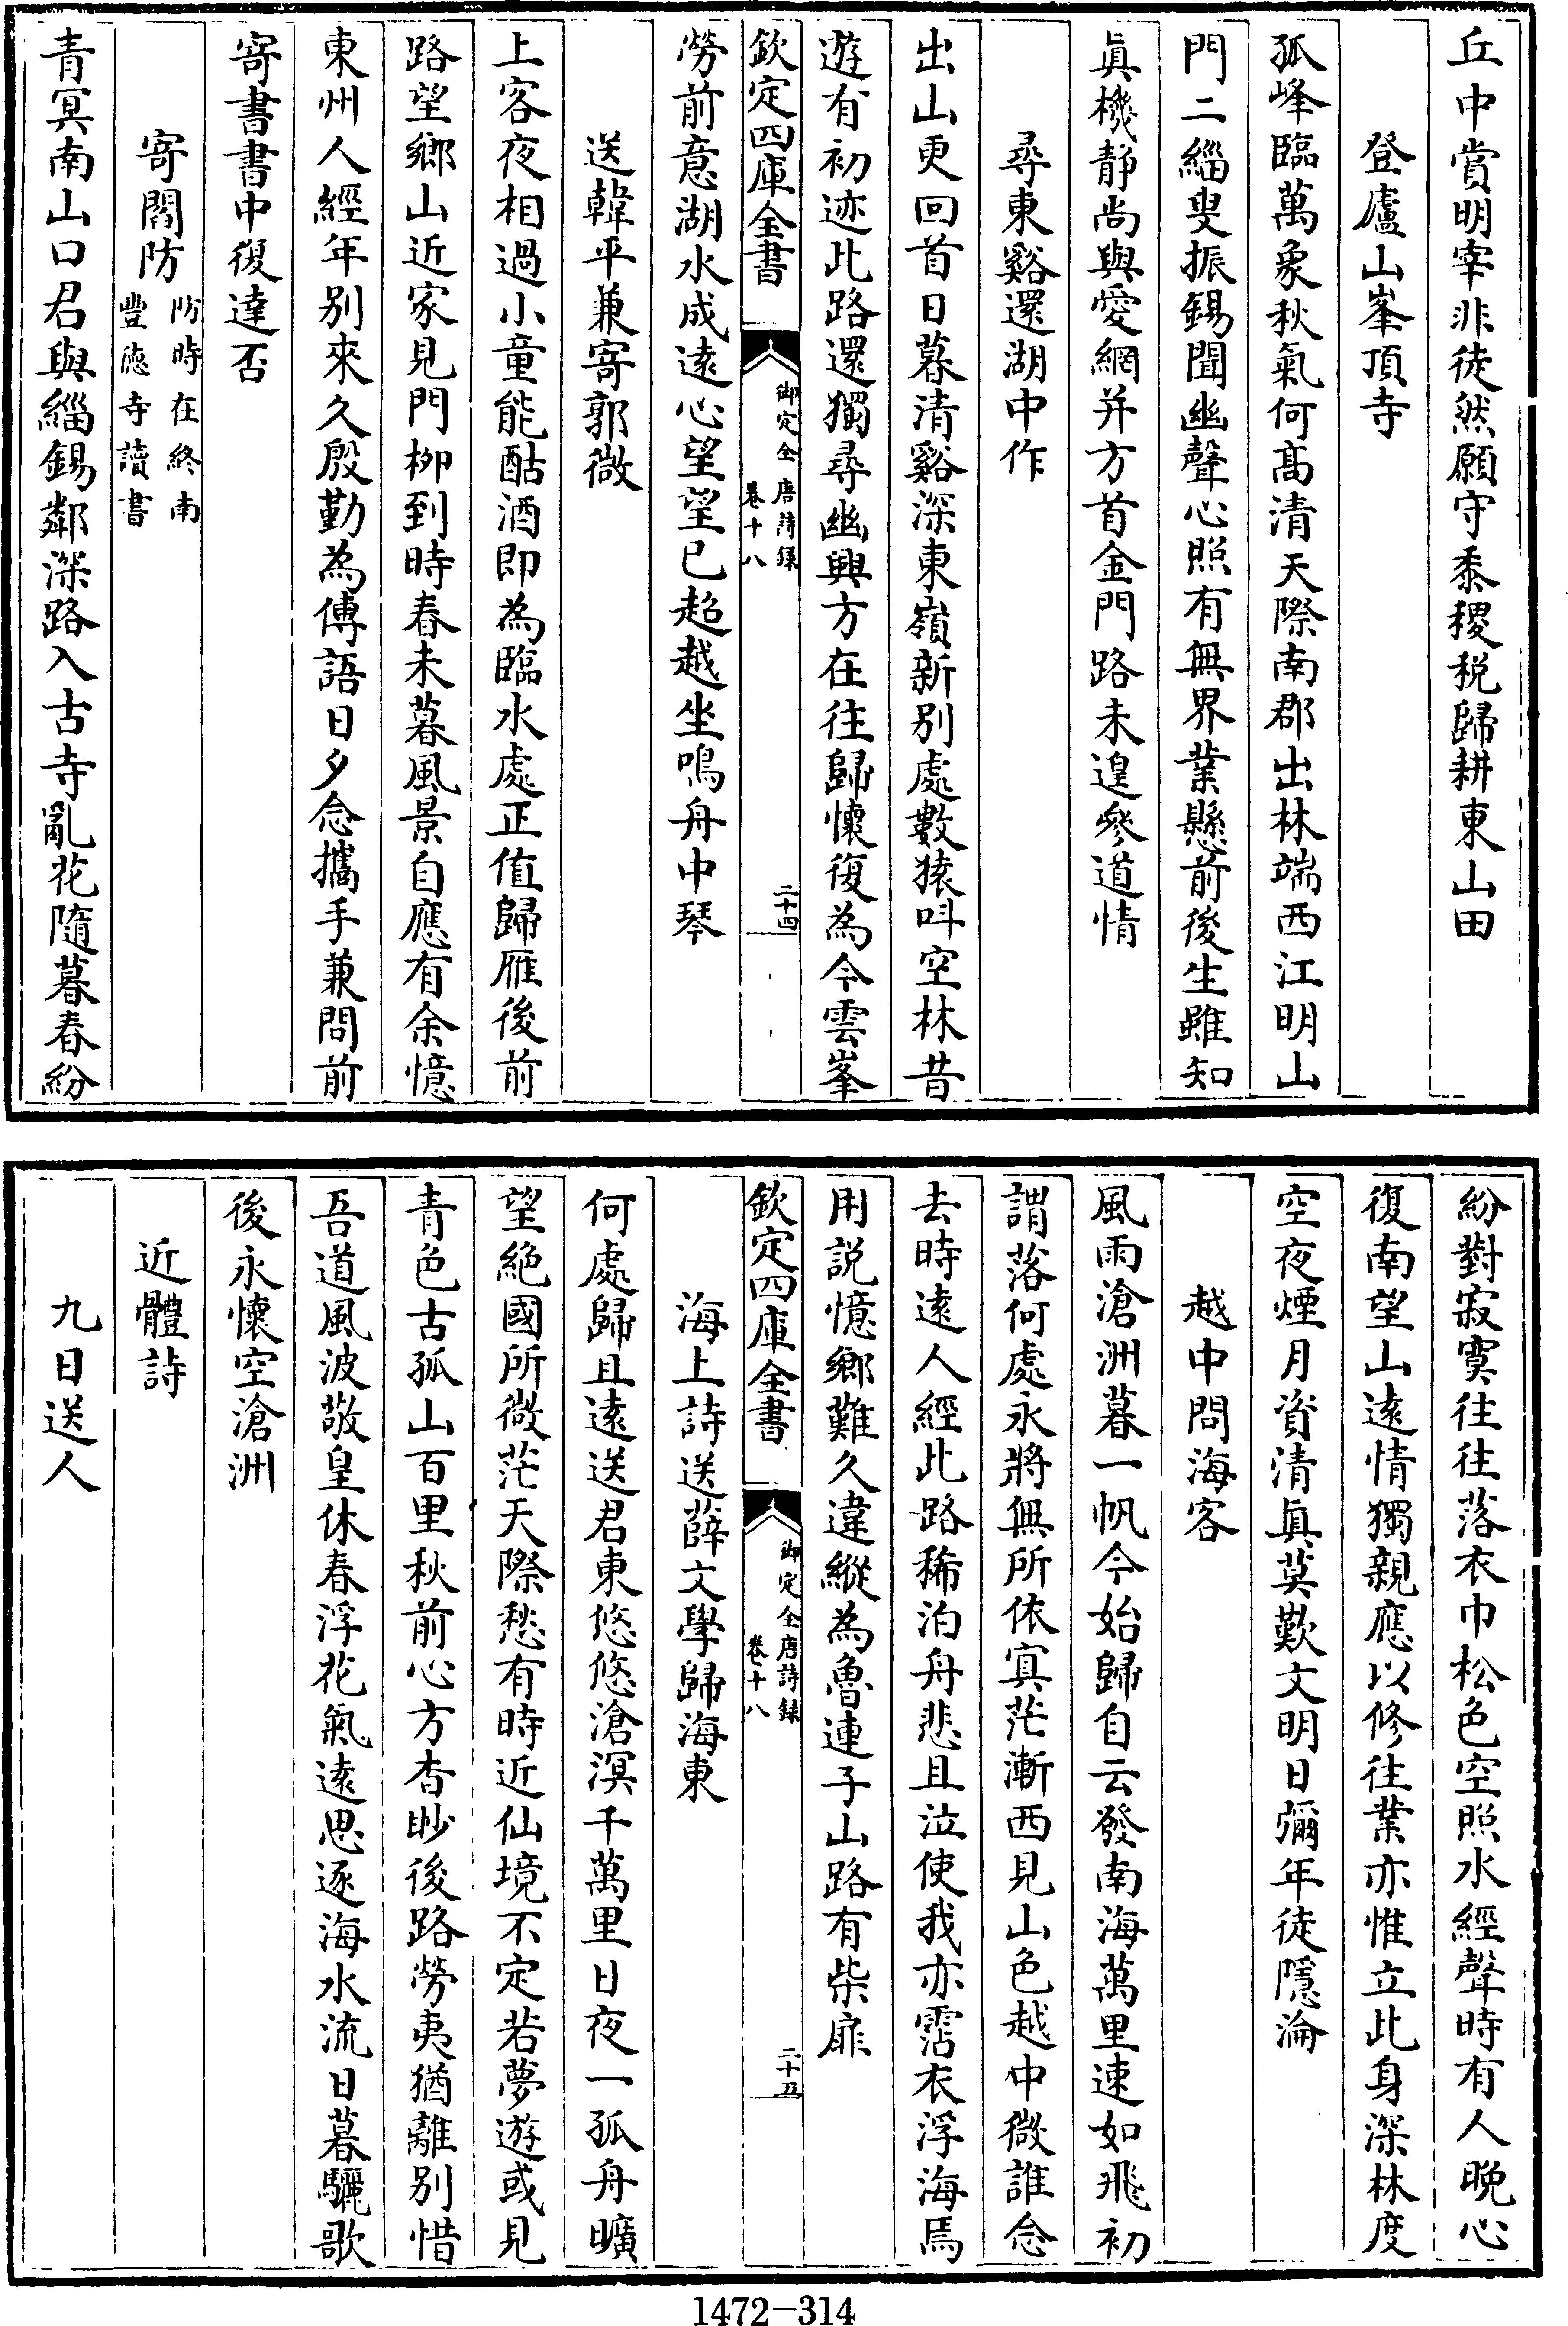 丘中賞明宰非徒然願守黍稷税歸耕東山田
登廬山峯頂寺
孤峰臨萬象秋氣何髙清天際南郡出林端西江明山
門二緇叟振錫聞幽聲心照有無界業懸前後生雖知
眞機靜尚與愛網并方首金門路未遑參道情
尋東谿還湖中作
出山更回首日暮清谿深東嶺新别處數猿呌空林昔
遊有初迹此路還獨尋幽興方在往歸懷復為今雲峯
欽定四庫全書
御定全唐詩録
卷十八
二十四
勞前意湖水成逺心望望已超越坐鳴舟中琴
送韓平兼寄郭微
上客夜相過小童能酤酒即為臨水處正值歸雁後前
路望鄉山近家見門栁到時春未暮風景自應有余憶
東州人經年别來久殷勤為傳語日夕念攜手兼問前
寄書書中復達否
寄閻防
防時在終南
豐徳寺讀書
青冥南山口君與緇錫鄰深路入古寺亂花隨暮春紛
紛對寂寞往往落衣巾松色空照水經聲時有人晚心
復南望山逺情獨親應以修往業亦惟立此身深林度
空夜煙月資清眞莫歎文明日彌年徒隱淪
越中問海客
風雨滄洲暮一帆今始歸自云發南海萬里速如飛初
謂落何處永將無所依㝠茫漸西見山色越中微誰念
去時逺人經此路稀泊舟悲且泣使我亦霑衣浮海焉
用説憶鄉難久違縱為魯連子山路有柴扉
欽定四庫全書
御定全唐詩録
卷十八
二十五
海上詩送薛文學歸海東
何處歸且逺送君東悠悠滄溟千萬里日夜一孤舟曠
望絶國所微茫天際愁有時近仙境不定若夢遊或見
青色古孤山百里秋前心方杳眇後路勞夷猶離别惜
吾道風波敬皇休春浮花氣逺思逐海水流日暮驪歌
後永懷空滄洲
近體詩
九日送人
1472-314